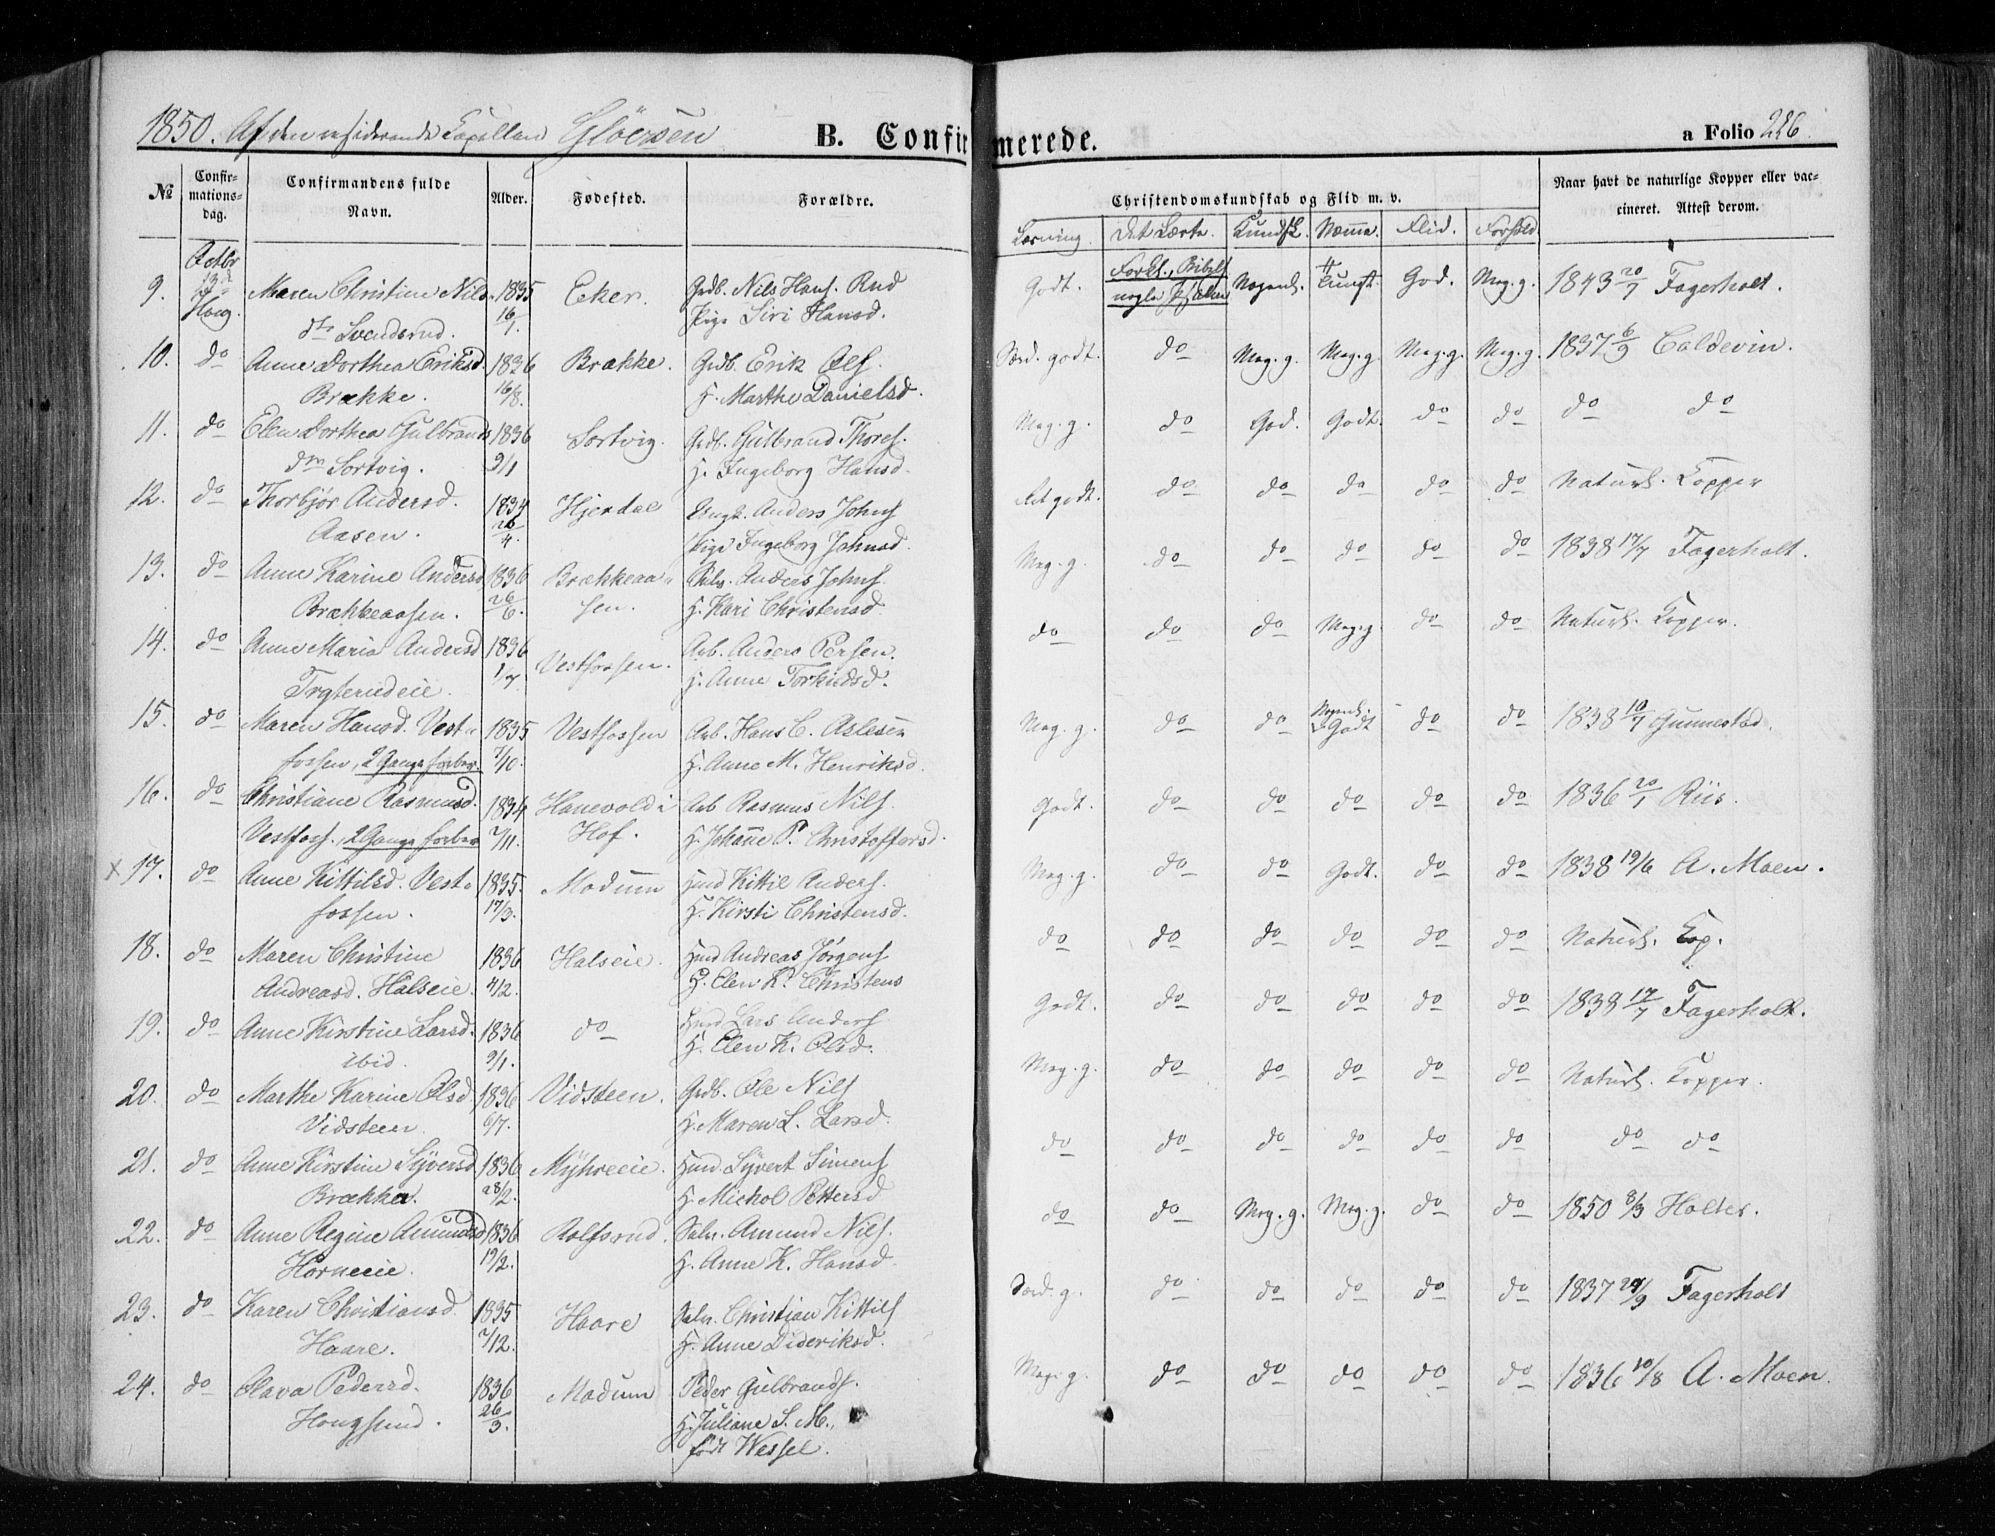 1850. Af den residerende Capellan Gløersen B. Confirmerede. a Folio 226.
№ Confirmations-dag. Confirmandens fulde Navn. Alder. Fødested. Forældre. Christendomskundskab og Flid m. v. Naar havt de naturlige Kopper eller vaccineret. Attest derom.
Læsning. Det Lærte. Kundsk. Nemme. Flid. Forhold
Octbr
9. 13de Maren Christine Nils- 1835 Eker. Grdb. Nils Hans. Rud Godt. Forkl., Bibelh God. Meg. g. 1843 20/7 Fagerholt.
Houg. dtr Svendsrud. 16/1. Pige Siri Hansd. nogle Psalmer
10. do Anne Dorthea Eriksd 1836 Brække. Grdb. Erik Ols. Særd. godt. do Meg. g. Meg. g. Meg. g. Meg. g. 1837 6/9 Coldevin.
Brække. 16/8. H. Marthe Danielsd.
11. do Elen Dorthea Gulbrands 1836 Sortvig. Grdb. Gulbrand Thores. Meg. g. do God. Godt. do do do do
dtr Sortvig. 9/1 H. Ingeborg Hansd.
12. do Thorbjør Andersd. 1834 Hjerdal Ungk. Anders Johns Ret godt. do do do do do Naturl. Kopper
Aasen. 26/4. Pige Ingeborg Johnsd.
13. do Anne Karine Andersd 1836 Brækkeaa- Selv. Anders Johns. Meg. g. do do do do do 1838 17/7 Fagerholt.
Brækkeaasen. 26/6. sen. H. Kari Christensd.
14. do Anne Maria Andersd 1836 Vestfossen. Arb. Anders Persen. do do do Meg. g. do do Naturl. Kopper.
Trgterudeie. 1/7. H. Anne Torkildsd.
15. do Maren Hansd. Vest- 1835 Vestfossen Arb. Hans C. Aslesen Meg. g. do do Nogenl. Godt do do 1838 10/7 Gunnestad.
fossen, 2 Gange forber. 7/10. H. Anne M. Henriksd.
16. do Christiane Rasmusd. 1834 Hanevold i Arb Rasmus Nils. Godt. do do do do do 1836 20/1 Riis.
Vestfoss., 2 Gange forber 2/11. Hof. H. Johanne P. Christoffersd.
x 17. do Anne Kittilsd. Vest- 1835. Modum Hmd Kittil Anders. Meg. g. do do Godt. do do 1838 19/6 A. Moen.
fossen. 17/3. H. Kirsti Christensd.
18. do Maren Christine 1836 Halseie. Hmd Andreas Jørgens do do do do do do Naturl. Kop.
Andreasd. Halseie. 4/2. H. Elen K. Christens
19. do Anne Kirstine Larsd. 1836 do Hmd Lars Anders Godt. do do do do do 1838 17/7 Fagerholt.
ibid. 9/1. H. Elen K. Olsd.
20. do Marthe Karine Olsd 1836 Vidsteen. Grdb. Ole Nils Meg. g. do do do do do Naturl. Kopper.
Vidsteen. 6/7. H. Maren L. Larsd.
21. do Anne Kirstine Syversd 1836 Myhreeie. Hmd. Syvert Simens do do do do do do do do
Brækka. 28/2. H. Michol Pettersd
22. do Anne Regine Amundsd 1836 Rolfsrud. Selv. Amund Nils. do do Meg. g. Meg. g. do do 1850 8/3 Holter.
Horneeie. 19/2. H. Anne K. Hansd
23. do Karen Christiansd. 1835 Haare Selv. Christian Kittils Særd. g. do do do do do 1837 29/9 Fagerholt
Haare. 2/12. H. Anne Dideriksd.
24. do Olava Pedersd. 1836 Modum Peder Gulbrands. Meg. g. do do do do do 1836 10/8 A. Moen.
Hougsund. 26/3. H. Juliane S. M.
født Wessel.